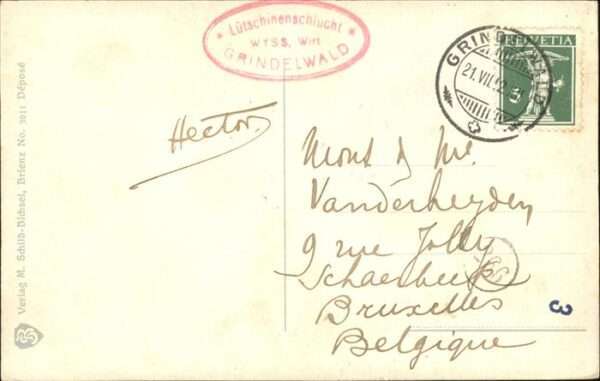 * Lütschinenschlucht *
WYSS, Wirt
GRINDELWALD
GRINDELWALD
21.VII.12
HELVETIA
5
Hector
Mons & Me
Vanderheyden
9 rue Jolly
Schaerbeek
Bruxelles
Belgique
3
Verlag M. Schild-Bichsel, Brienz No. 3011 Déposé